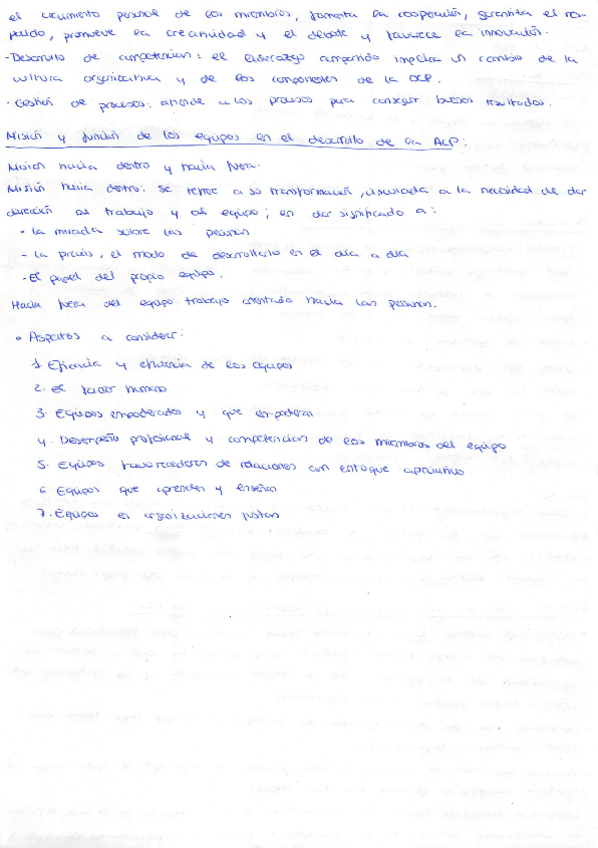 el crecimiento personal de los miembros, fomenta la cooperación, garantiza el res-
peto, promueve la creatividad y el debate y favorece la innovación.
- Desarrollo de competencias: el liderazgo compartido implica un cambio de la
cultura organizativa y de los componentes de la ACP.
- Gestión de procesos: atiende a los procesos para conseguir buenos resultados.
Misión y función de los equipos en el desarrollo de la ACP:
Misión hacia dentro y hacia fuera.
Misión hacia dentro: se refiere a su transformación, vinculada a la necesidad de dar
dirección al trabajo y al equipo; en dar significado a:
- La mirada sobre las personas
- La praxis, el modo de desarrollarlo en el día a día
- El papel del propio equipo.
Hacia fuera del equipo: trabajo orientado hacia las personas.
• Aspectos a considerar:
1. Eficacia y eficiencia de los equipos
2. El factor humano
3. Equipos empoderados y que empoderan
4. Desempeño profesional y competencias de los miembros del equipo
5. Equipos favorecedores de relaciones con enfoque apreciativo
6. Equipos que aprenden y enseñan
7. Equipos en organizaciones justas